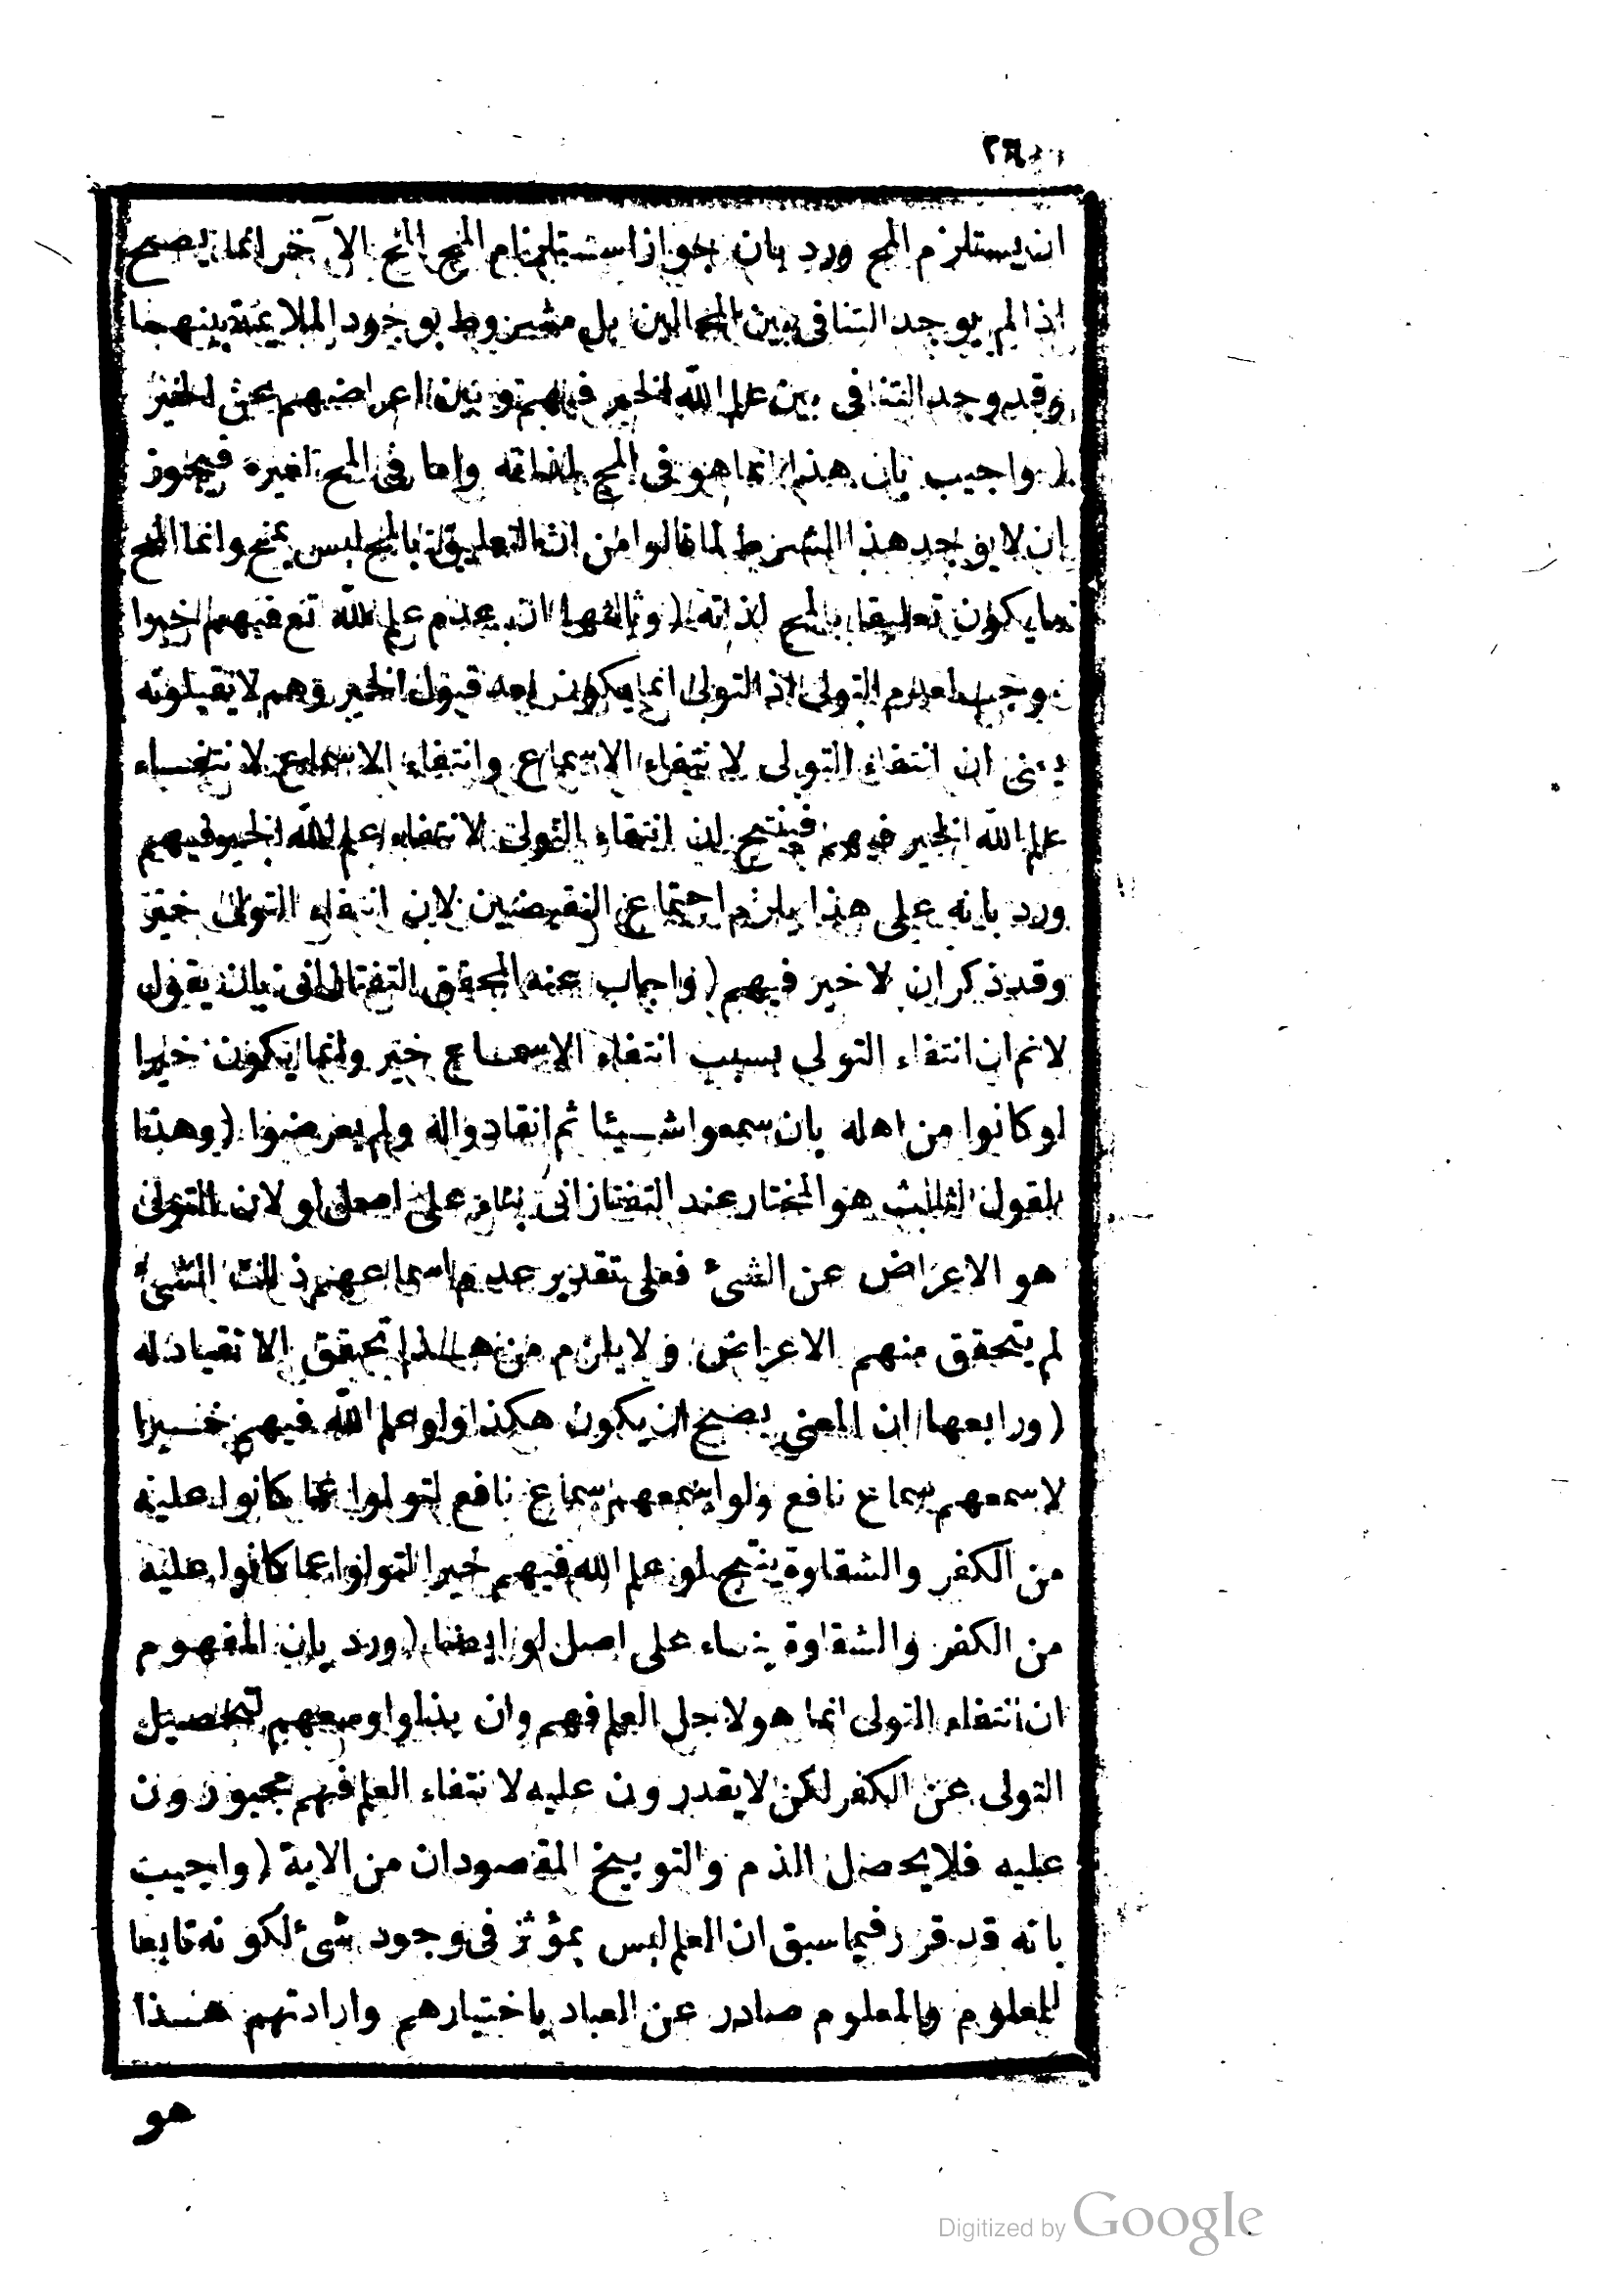 ان يستلزم المح ورد بان جواز استلزام المح المح الآخر انما يصح
اذا لم يوجد التنافى بين المحالين بل مشروط بوجود الملايمة بينهما
وقد وجد التنافى بين علم الله الخير فيهم وبين اعراضهم عن الخير
(واجيب بان هذا انما هو فى المح لذاته واما فى المح لغيره فيجوز
ان لا يوجد هذا الشرط لما قالوا من ان التعليق بالمح ليس بمح وانما المح
ما يكون تعليقا بالمح لذاته (وثالثها ان عدم علم الله تع فيهم خيرا
يوجب عدم التولى اذ التولى انما يكون بعد قبول الخير وهم لا يقبلونه
يعنى ان انتفاء التولى لانتفاء الاسماع وانتفاء الاسماع لانتفاء
علم الله الخير فيهم فينتج ان انتفاء التولى لانتفاء علم الله الخير فيهم
ورد بانه على هذا يلزم اجتماع النقيضين لان انتفاء التولى خير
وقد ذكر ان لا خير فيهم (واجاب عنه المحقق التفتازانى بان يقول
لانم ان انتفاء التولى بسبب انتفاء الاسماع خير وانما يكون خيرا
لو كانوا من اهله بان سمعوا شيئا ثم انقادوا له ولم يعرضوا (وهذا
القول الثالث هو المختار عند التفتازانى بناء على اصل لو لان التولى
هو الاعراض عن الشئ فعلى تقدير عدم اسماعهم ذلك الشئ
لم يتحقق منهم الاعراض ولا يلزم من هذا تحقق الانقياد له
(ورابعها ان المعنى يصح ان يكون هكذا ولو علم الله فيهم خيرا
لاسمعهم سماع نافع ولو اسمعهم سماع نافع لتولوا عما كانوا عليه
من الكفر والشقاوة ينتج لو علم الله فيهم خيرا لتولوا عما كانوا عليه
من الكفر والشقاوة بناء على اصل لو ايضا (ورد بان المفهوم
ان انتفاء التولى انما هو لاجل العلم فهم وان بذلوا وسعهم لتحصيل
التولى عن الكفر لكن لا يقدرون عليه لانتفاء العلم فهم مجبورون
عليه فلا يحصل الذم والتوبيخ المقصودان من الاية (واجيب
بانه قد قرر فيما سبق ان العلم ليس بمؤثر فى وجود شئ لكونه تابعا
للمعلوم والمعلوم صادر عن العباد باختيارهم وارادتهم هذا
هو
Digitized by Google